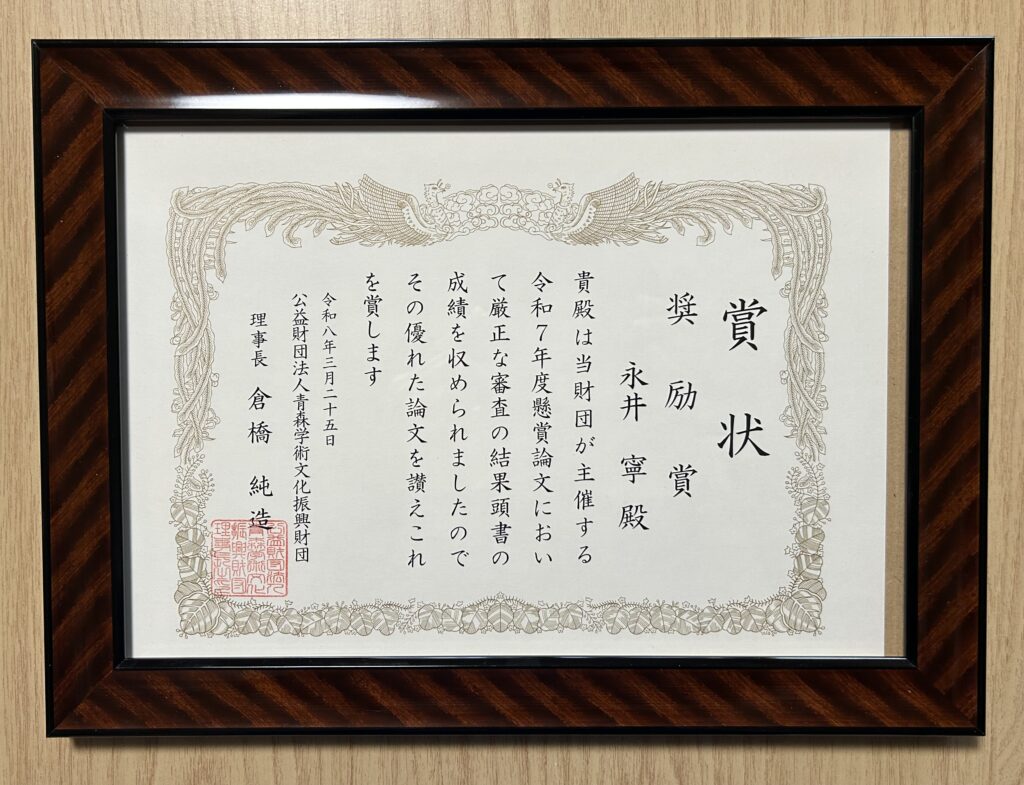 賞状
奨励賞
永井 寧 殿
貴殿は当財団が主催する
令和７年度懸賞論文におい
て厳正な審査の結果頭書の
成績を収められましたので
その優れた論文を讃えこれ
を賞します
令和八年三月二十五日
公益財団法人青森学術文化振興財団
理事長 倉橋 純造